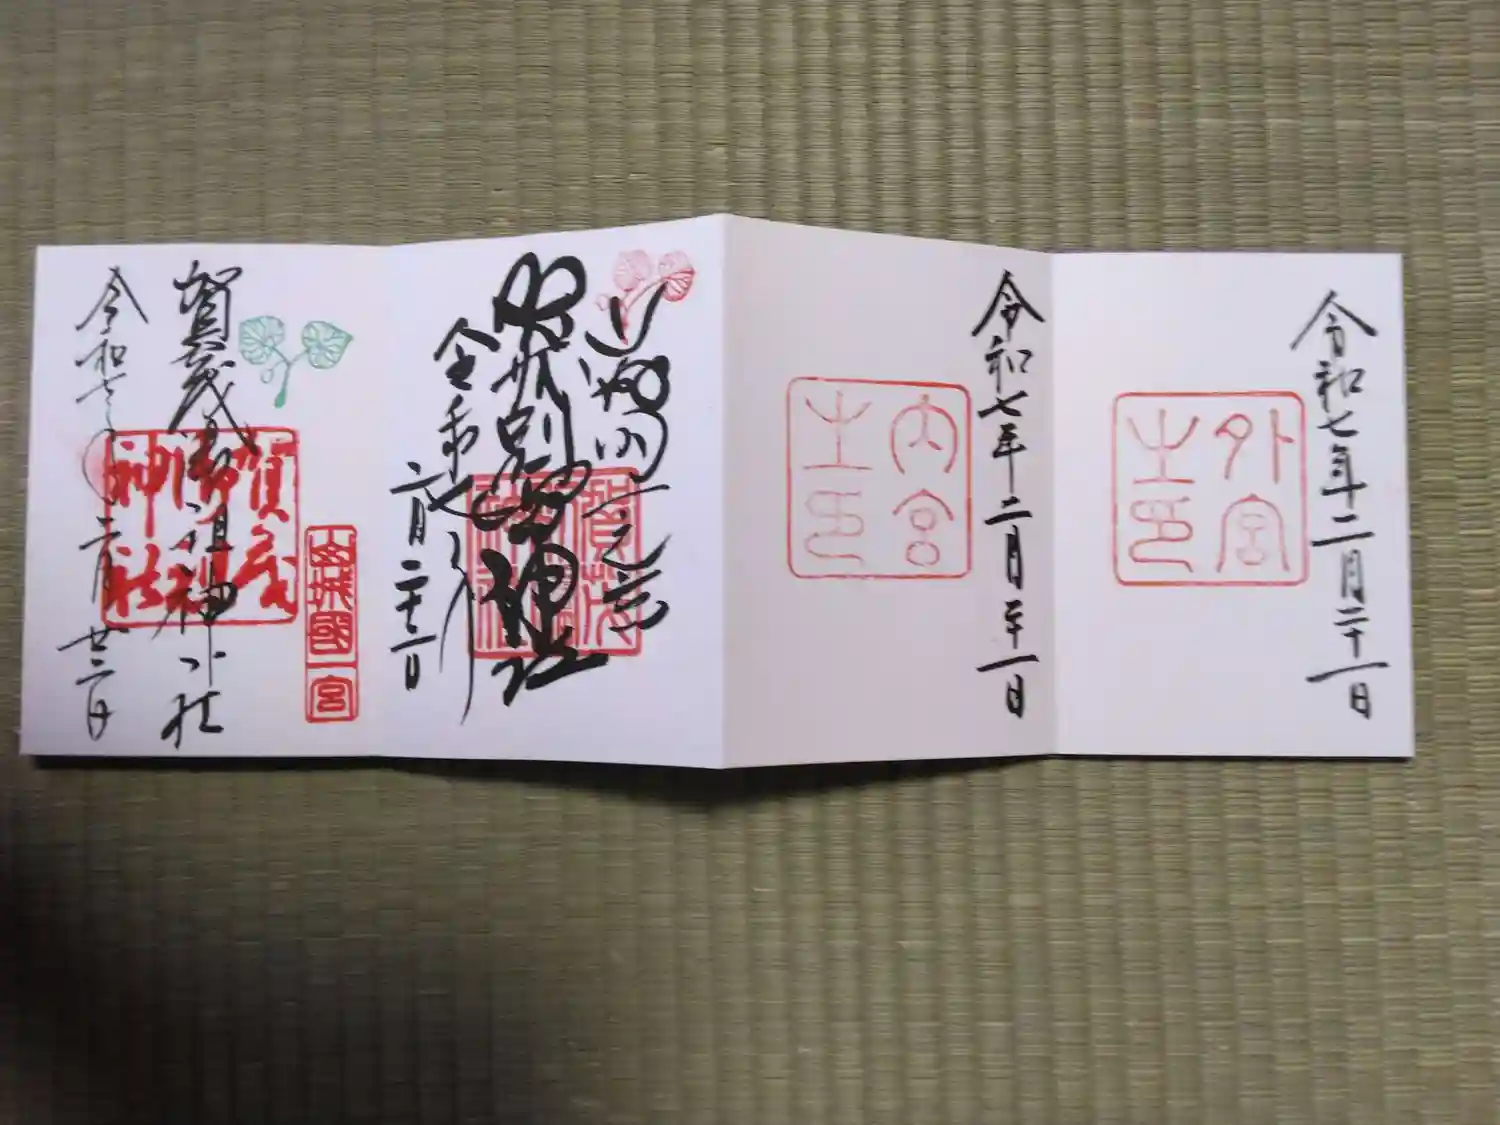 令和七年二月二十一日
外宮之印
令和七年二月二十一日
内宮之印
山城國一之宮
賀茂別雷神社
令和七年二月二十三日
山城國一宮
賀茂御祖神社
賀茂御祖神社
令和七年二月廿三日